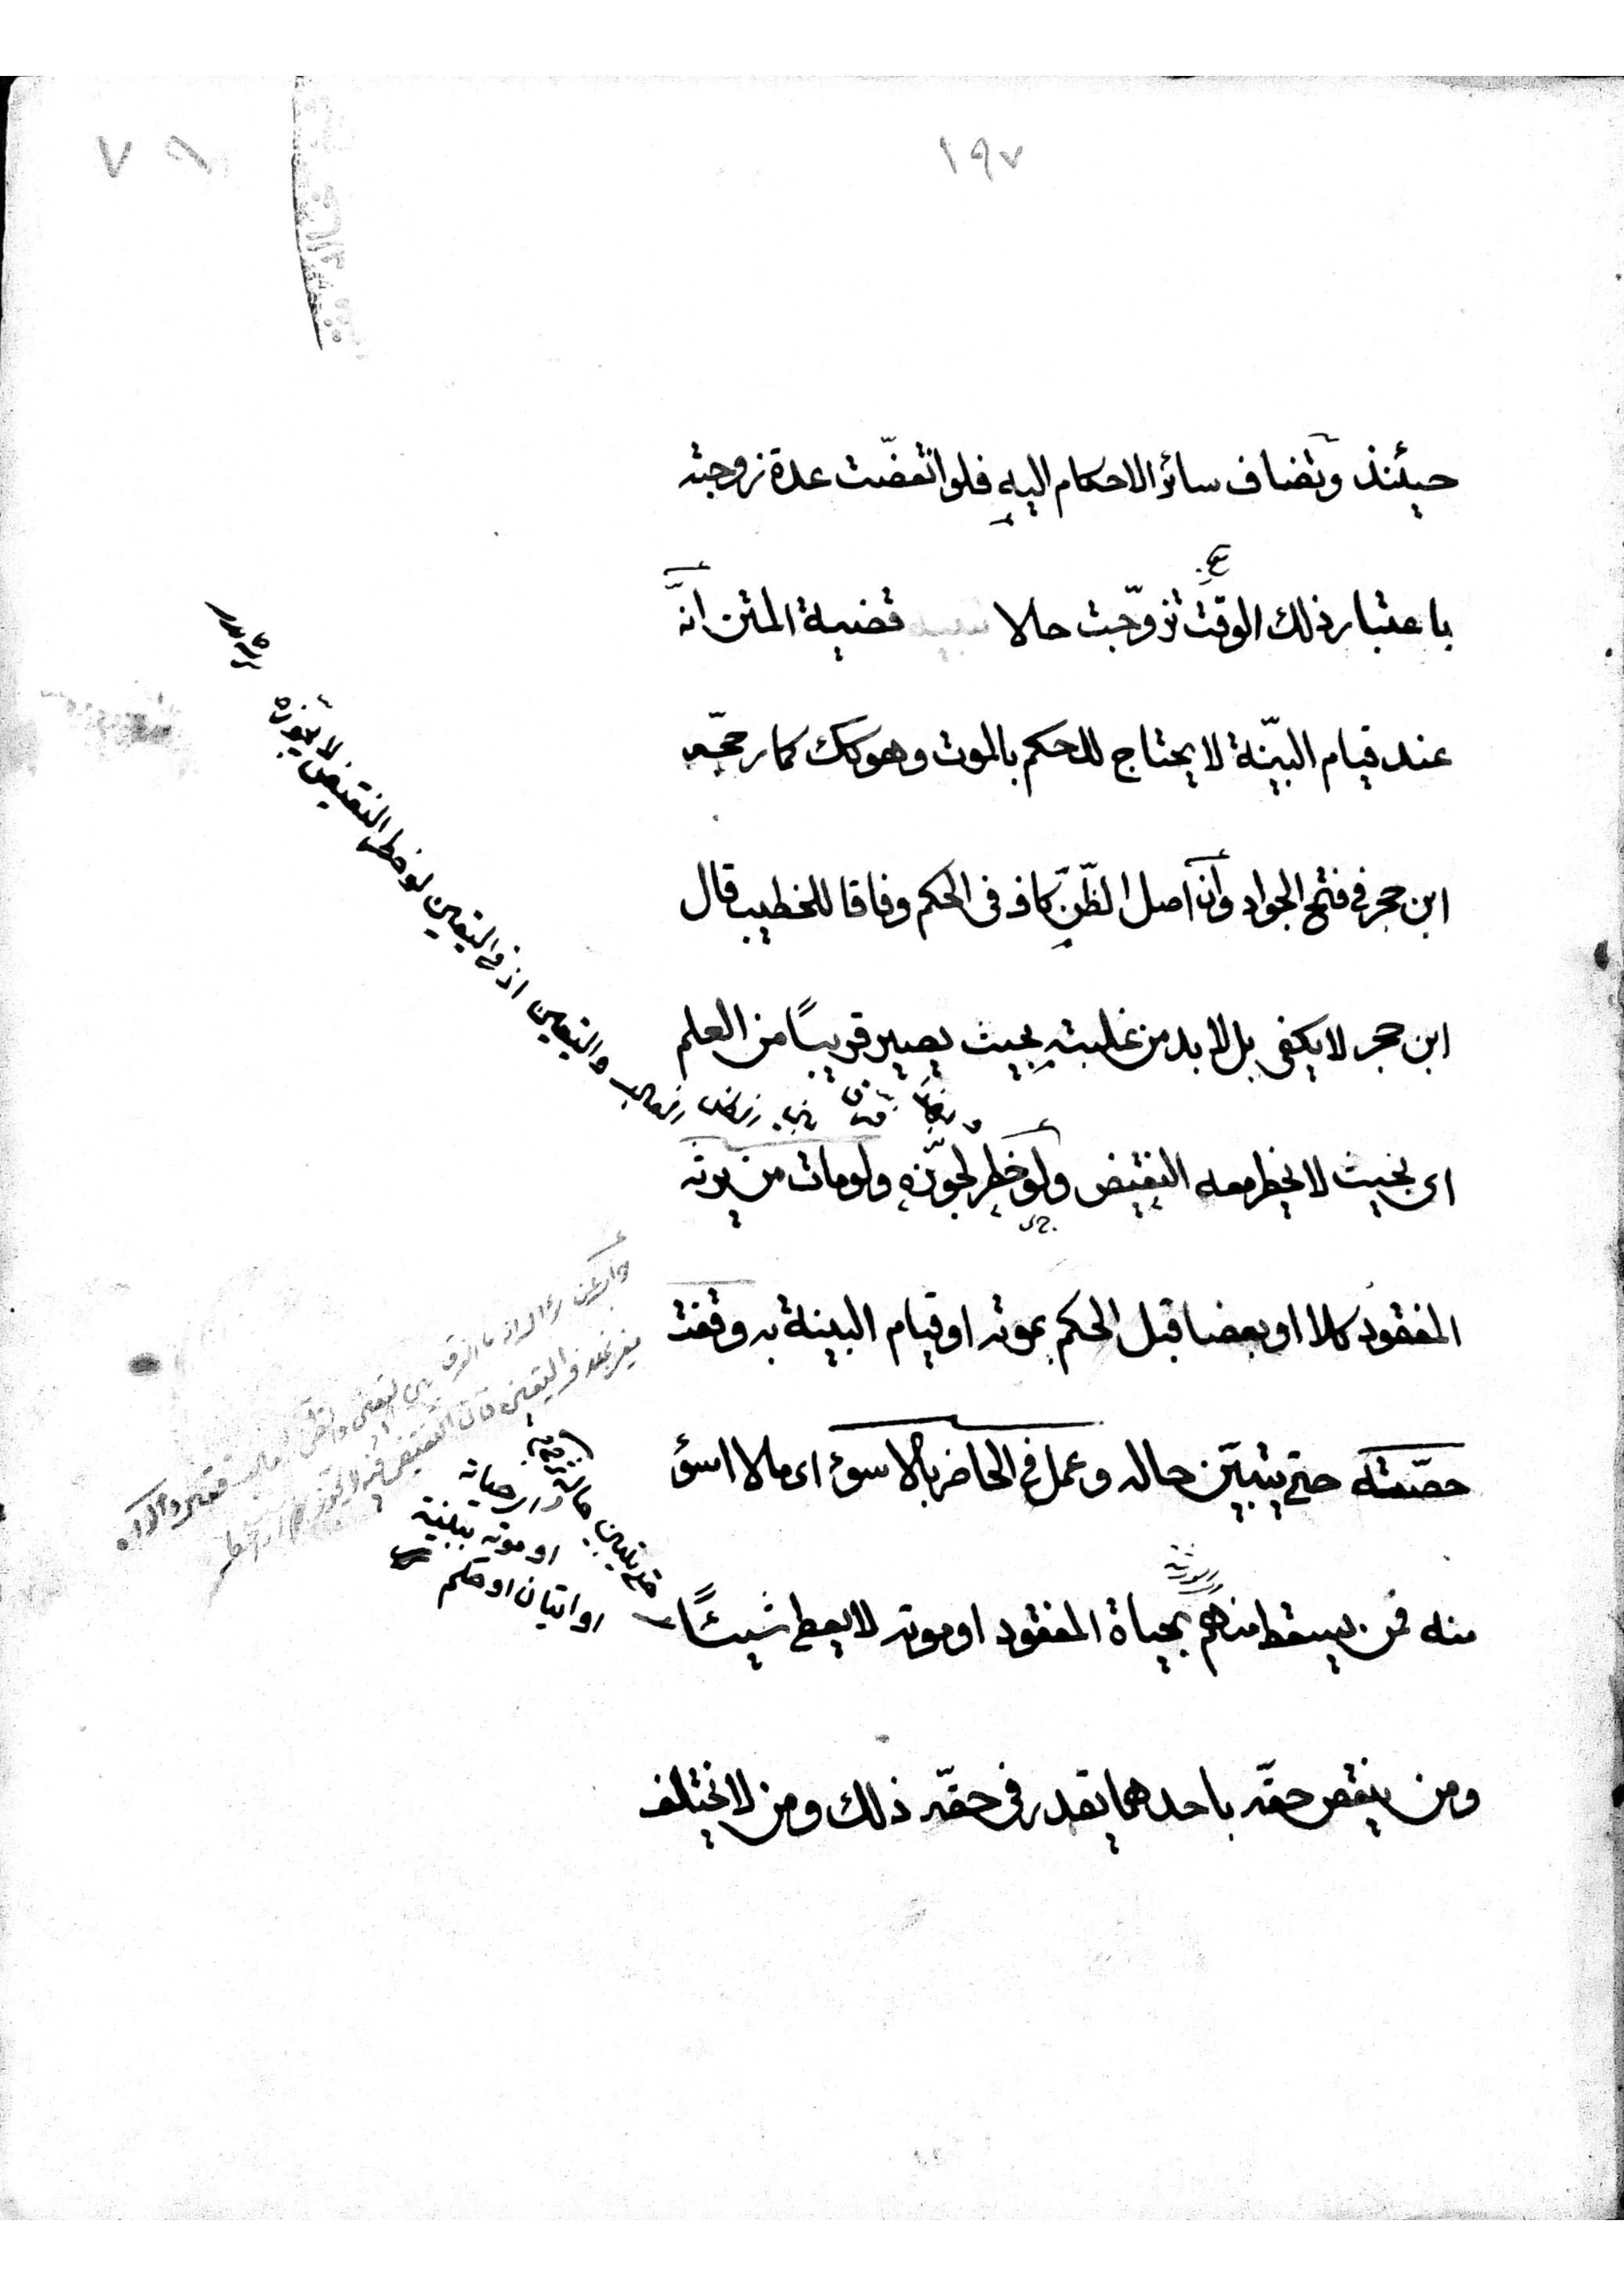 ١٩٧
حيئنذ وتضاف سائر الاحكام اليه فلو انقضّت عدة زوجته
باعتبار ذلك الوقت تزوّجت حالا تنبيه قضية المتن انّه
عند قيام البيّنة لا يحتاج للحكم بالموت وهو كك كما رجحّه
ابن حجر في فتح الجواد وأنّ اصل الظّنّ كاف فى الحكم وفاقا للخطيب قال
ابن حجر لا يكفى بل لا بد من غلبته بحيث يصير قريبًا من العلم
اى بحيث لا يخطر معه النقيض ولو خطر لجوّزه ولو مات من يرثه
المفقود كلا او بعضا قبل الحكم بموته او قيام البينة به وقفت
حصّته حتى يتبيّن حاله وعمل في الحاضر بالاسوء اى مالا اسؤ
منه فمن يسقط منهم بحياة المفقود او موته لا يعطى شيئًا
ومن ينقص حقّه باحدهما يقدر فى حقّه ذلك ومن لا يختلف
والتيقين اذ في اليقين لو خطر النقيض لا يجوزه
او موته ببينة
او اتيان او حكم